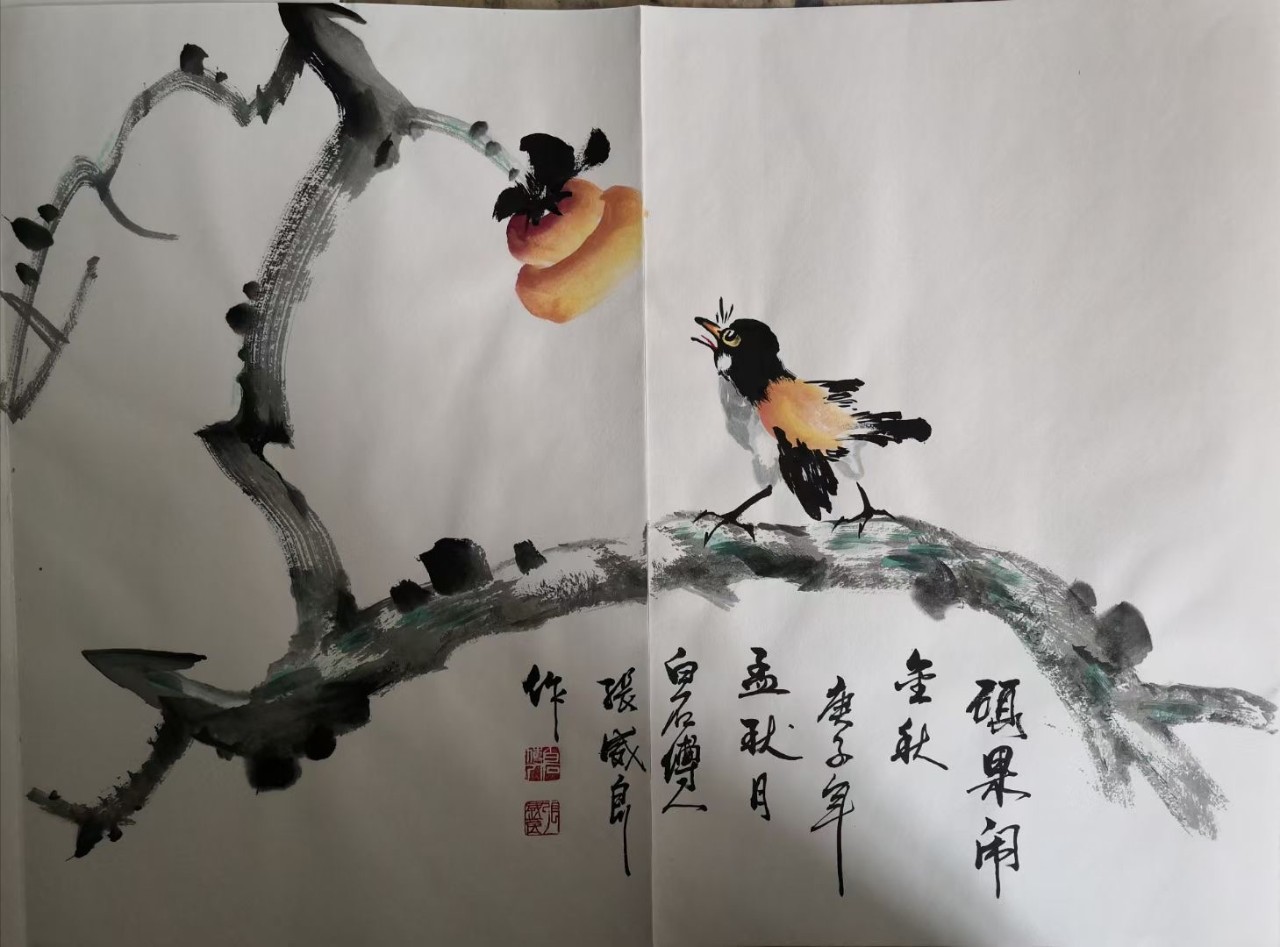 硕果闹
金秋
庚子年
孟秋月
白石傅人
張威良
作